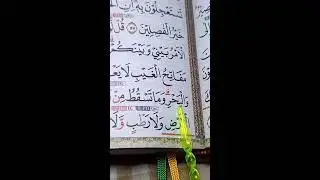 تَسْتَعْجِلُونَ بِهِ إِنِ
خَيْرُ الْفَاصِلِينَ ٥٧ قُل
الْأَمْرُ بَيْنِي وَبَيْنَكُمْ
مَفَاتِحُ الْغَيْبِ لَا يَعْ
وَالْبَحْرِ وَمَا تَسْقُطُ مِنْ
رْضِ وَلَا رَطْبٍ وَلَا